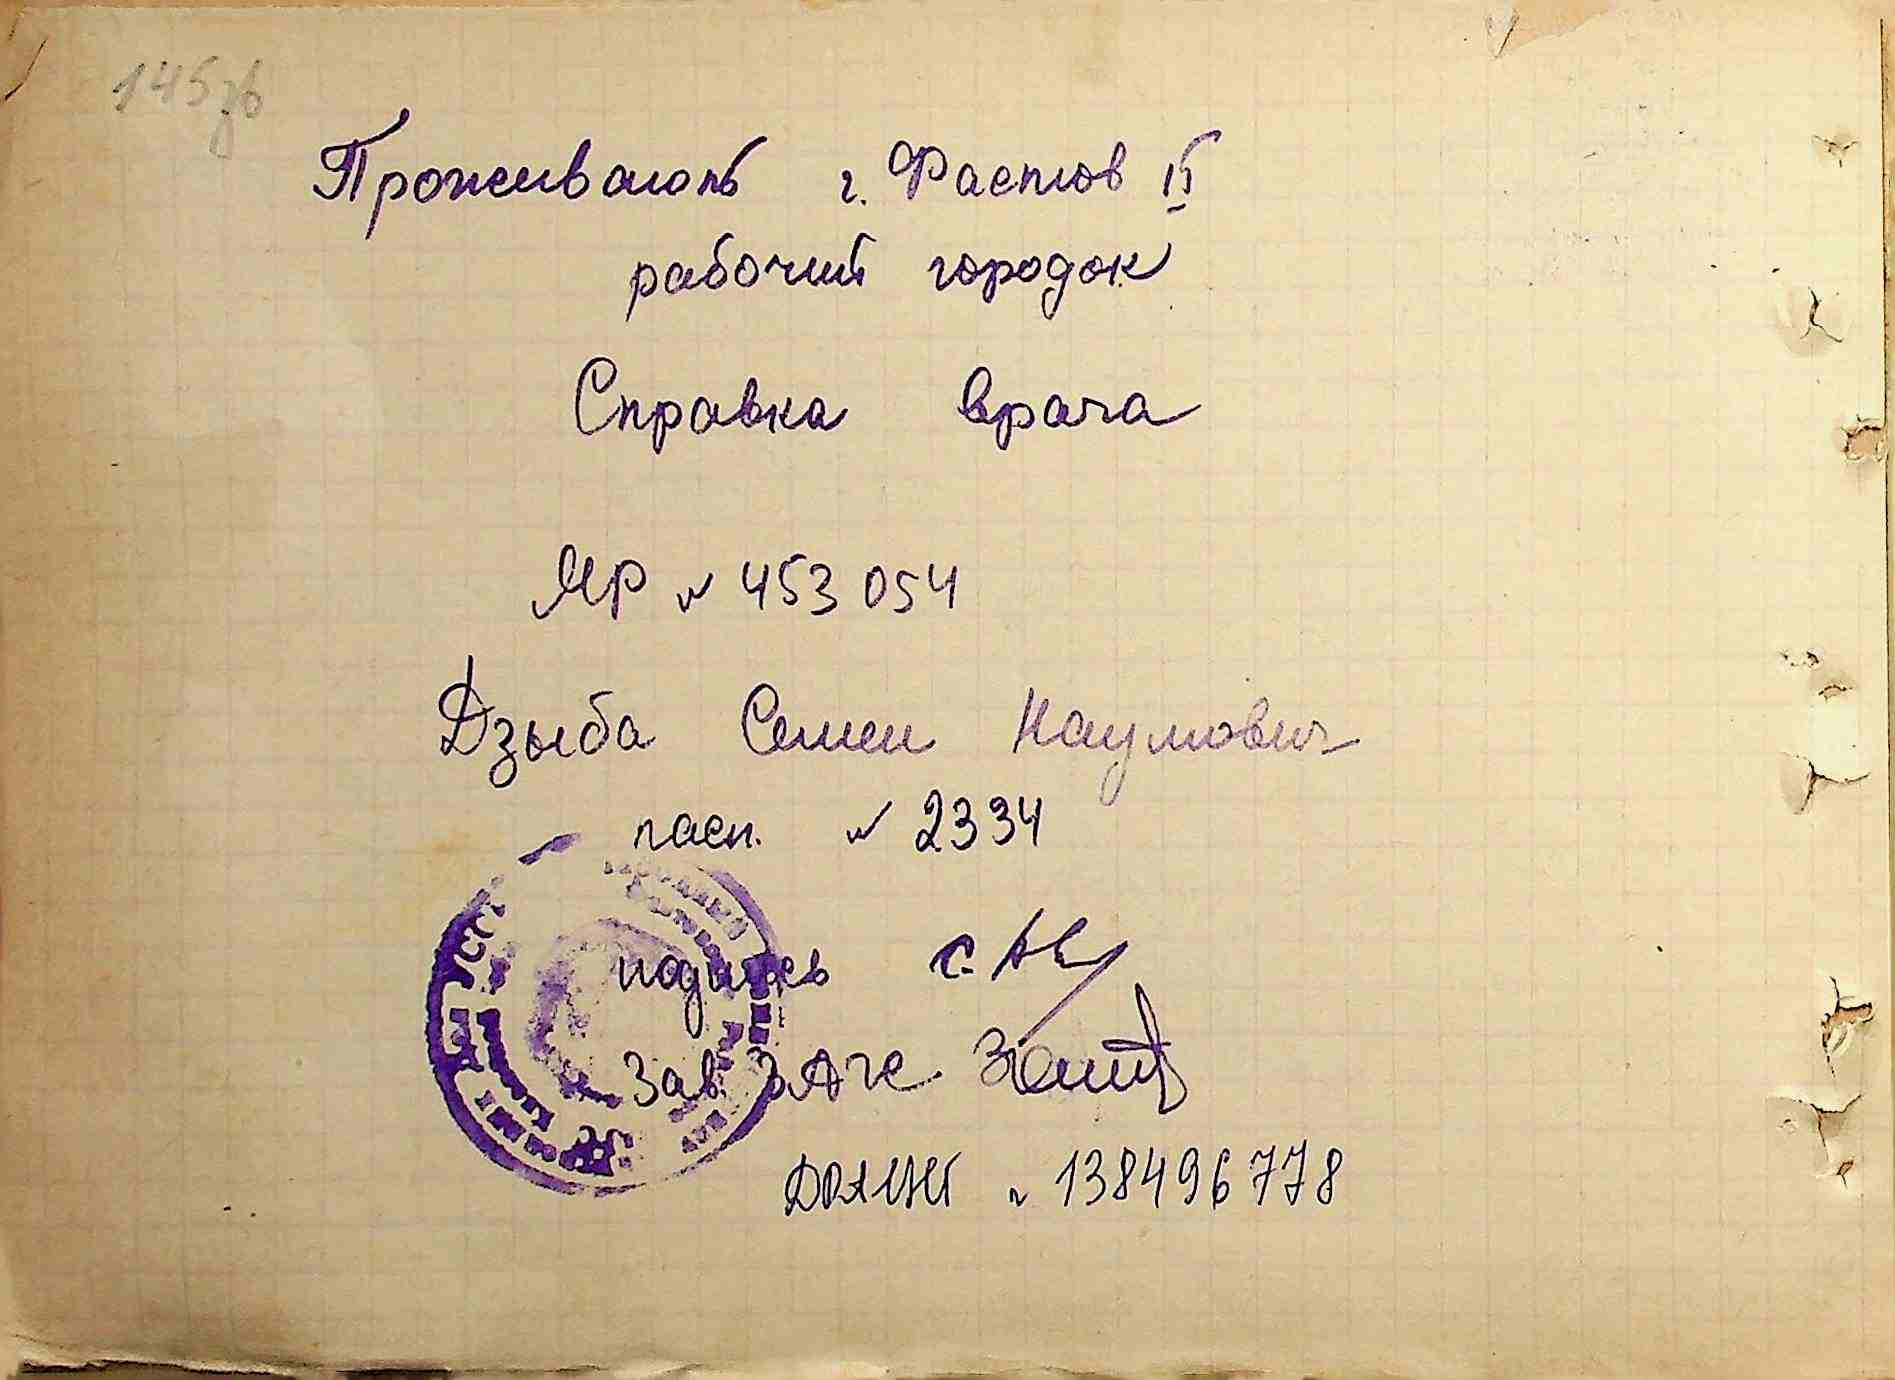 145зв
Проживают г. Фастов II
рабочий городок
Справка врача
ЯР № 453054
Дзыба Семен Наумович
пасп. № 2334
подпись
Зав. ЗАГС
№ 138496778